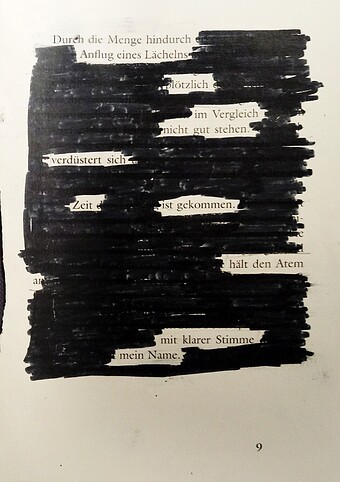 Durch die Menge hindurch
Anflug eines Lächelns
plötzlich
im Vergleich
nicht gut stehen.
verdüstert sich
Zeit ist gekommen.
hält den Atem
mit klarer Stimme
mein Name.
9